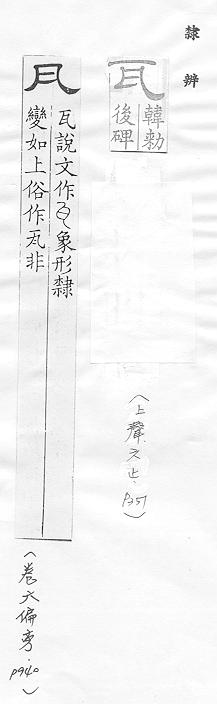 隸辨
瓦
韓勑
後碑
(上聲
瓦
瓦說文作象形隸
變如上俗作瓦非
(卷六偏旁.p940)